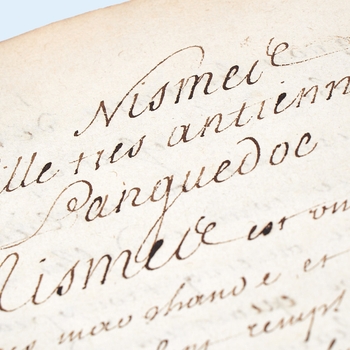 Nismeie
ille tres antienn
Languedoc
Nismeie est un
marchand e et
rempl